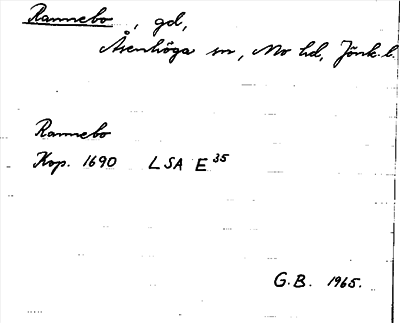 Rannebo, gd,
Åsenhöga sn, Mo hd, Jönk. l.
Rannebo
Kop. 1690 LSA E 35
G.B. 1965.